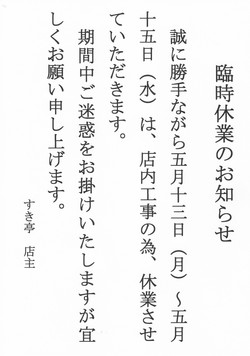 臨時休業のお知らせ
誠に勝手ながら五月十三日（月）～五月
十五日（水）は、店内工事の為、休業させ
ていただきます。
期間中ご迷惑をお掛けいたしますが宜
しくお願い申し上げます。
すき亭 店主